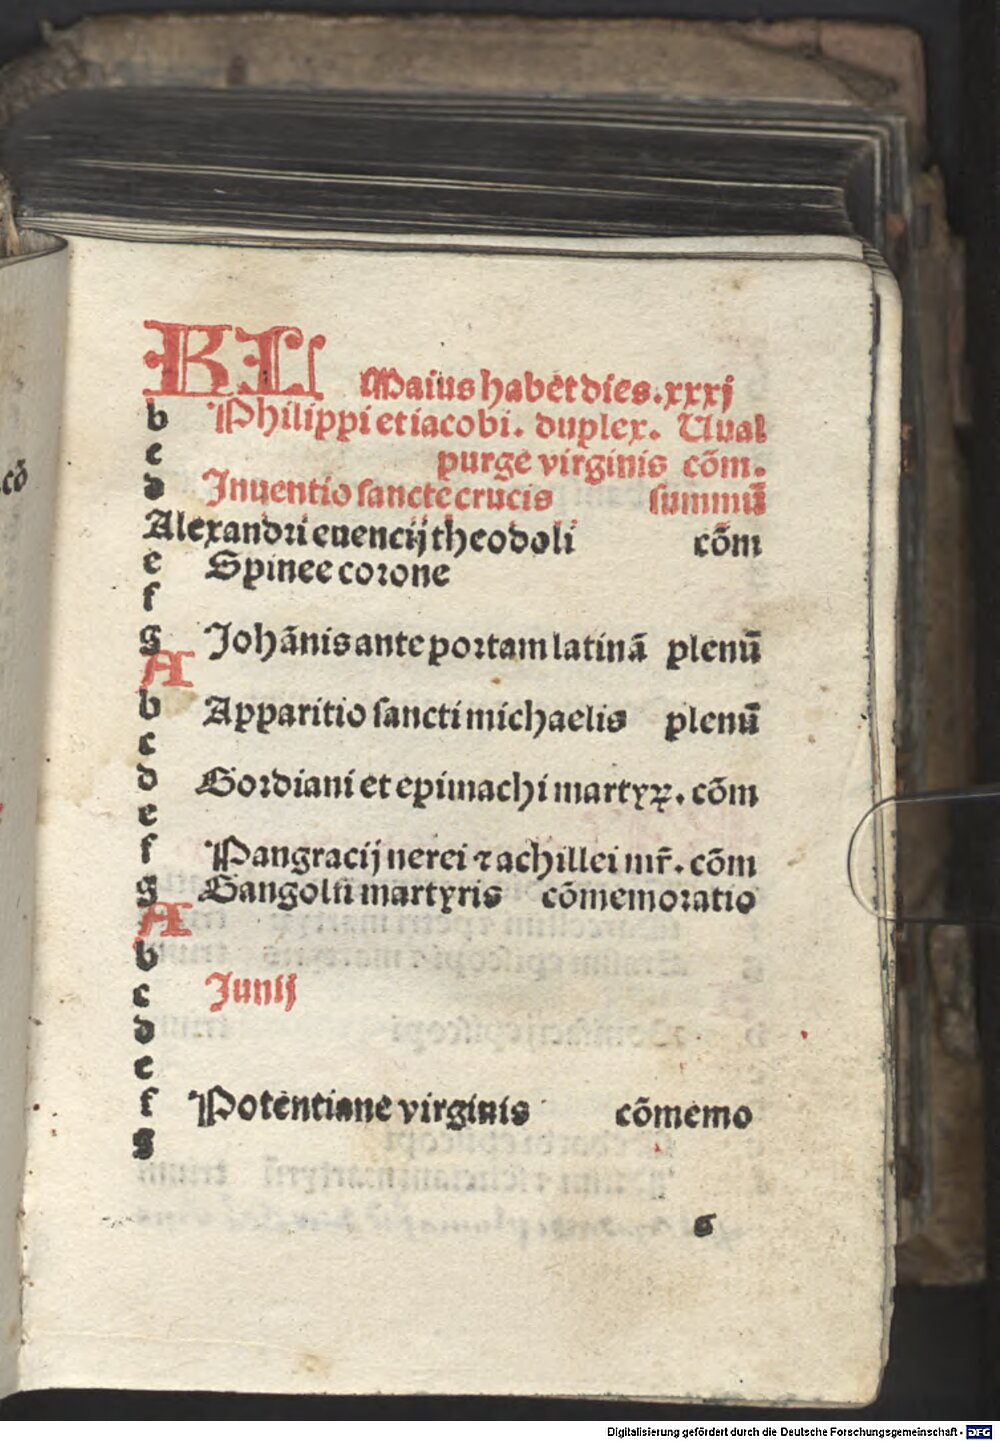 KL Maius habēt dies.xxxj
b Philippi et iacobi. duplex. Uual
c purge virginis cōm.
d Inuentio sancte crucis summū
Alexandri euencij theodoli cōm
e Spinee corone
f
g Johānis ante portam latinā plenū
A
b Apparitio sancti michaelis plenū
c
d Gordiani et epimachi martyꝝ. cōm
e
f Pangracij nerei ⁊ achillei mr̄. cōm
g Gangolfi martyris cōmemoratio
A
b
c Junij
d
e
f Potentiane virginis cōmemo
g
cō
6
Digitalisierung gefördert durch die Deutsche Forschungsgemeinschaft - DFG